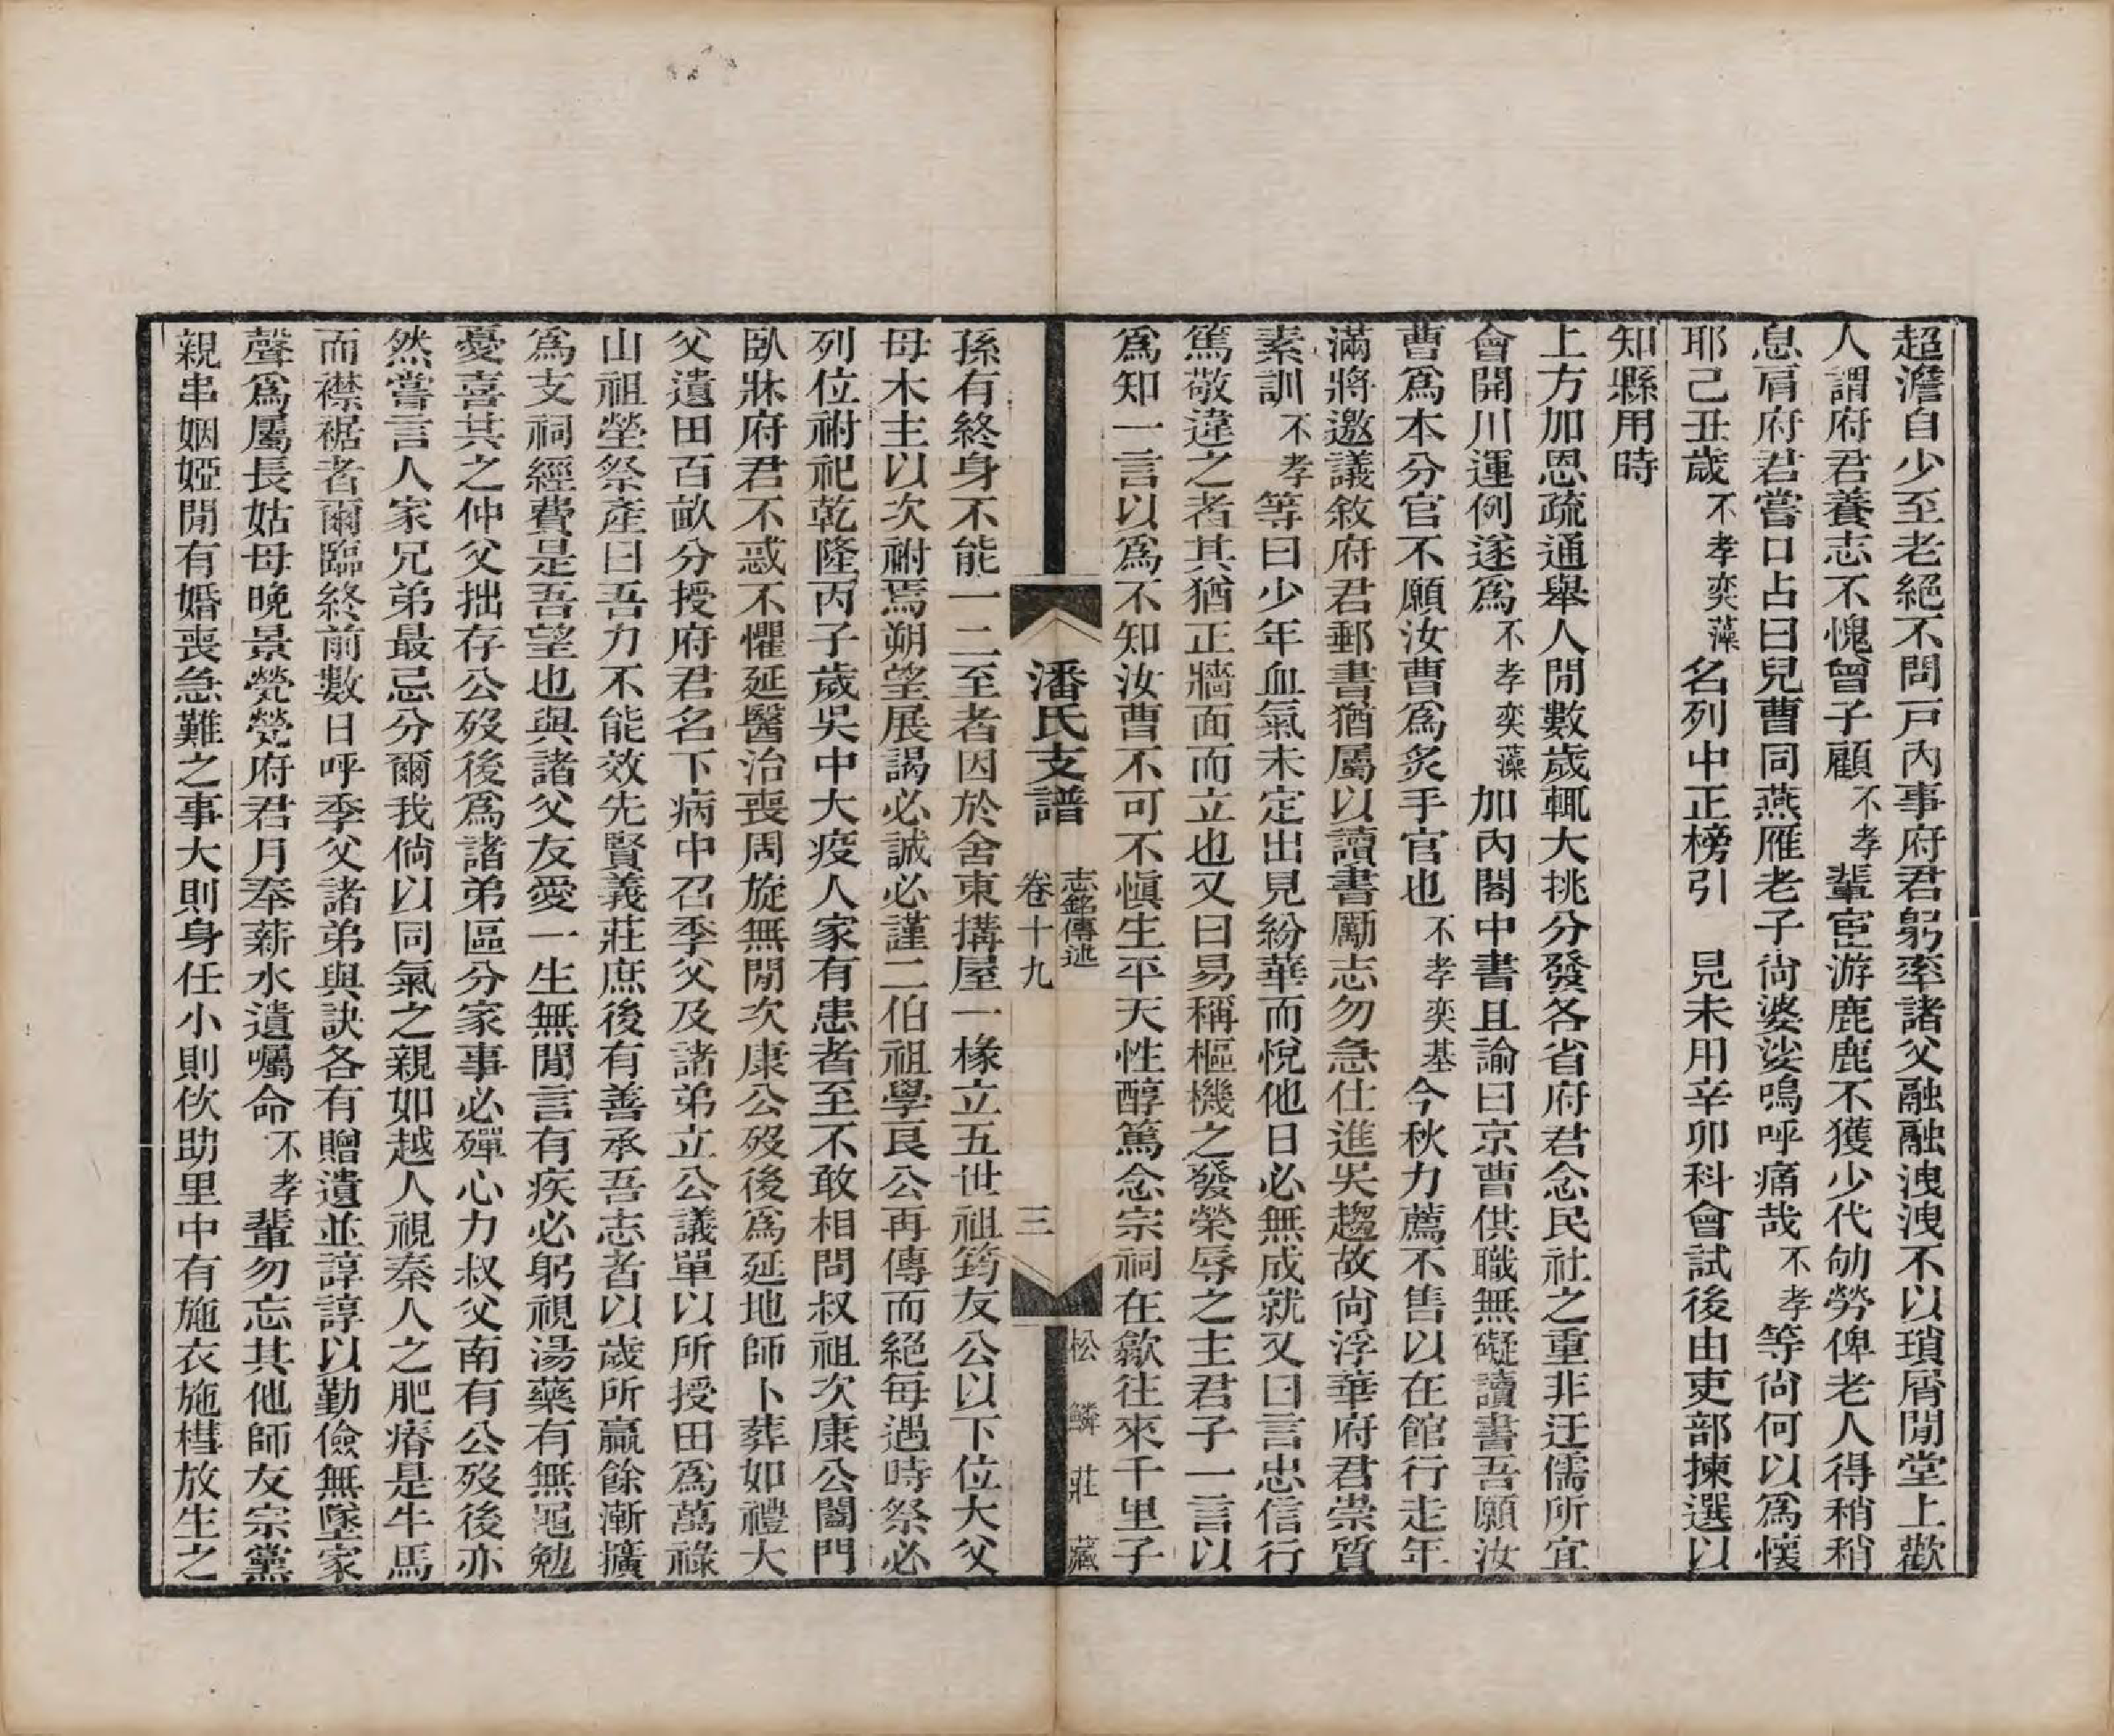 超澹自少至老絕不問戸內事府君躬率諸父融融洩洩不以瑣屑閒堂上歡
人謂府君養志不愧曾子顧不孝輩宦游鹿鹿不獲少代劬勞俾老人得稍稍
息肩府君嘗口占曰兒曹同燕雁老子尙婆娑嗚呼痛哉不孝等尙何以爲懷
耶己丑歲不孝奕藻名列中正榜引　見未用辛卯科會試後由吏部揀選以
知縣用時
上方加恩疏通舉人閒數歲輒大挑分發各省府君念民社之重非迂儒所宜
會開川運例遂爲不孝奕藻加內閣中書且諭曰京曹供職無礙讀書吾願汝
曹爲本分官不願汝曹爲炙手官也不孝奕基今秋力薦不售以在館行走年
滿將邀議敘府君郵書猶屬以讀書勵志勿急仕進吳趨故尙浮華府君崇質
素訓不孝等曰少年血氣未定出見紛華而悅他日必無成就又曰言忠信行
篤敬違之者其猶正牆面而立也又曰易稱樞機之發榮辱之主君子一言以
爲知一言以爲不知汝曹不可不愼生平天性醇篤念宗祠在歙往來千里子
潘氏支譜　志銘傳述　卷十九　三　松鱗莊藏
孫有終身不能一二至者因於舍東搆屋一椽立五世祖筠友公以下位大父
母木主以次祔焉朔望展謁必誠必謹二伯祖學艮公再傳而絕每遇時祭必
列位祔祀乾隆丙子歲吳中大疫人家有患者至不敢相問叔祖次康公闔門
臥牀府君不惑不懼延醫治喪周旋無閒次康公歿後爲延地師卜葬如禮大
父遺田百畝分授府君名下病中召季父及諸弟立公議單以所授田爲萬祿
山祖塋祭產曰吾力不能效先賢義莊庶後有善承吾志者以歲所贏餘漸擴
爲支祠經費是吾望也與諸父友愛一生無閒言有疾必躬視湯藥有無黽勉
憂喜共之仲父拙存公歿後爲諸弟區分家事必殫心力叔父南有公歿後亦
然嘗言人家兄弟最忌分爾我倘以同氣之親如越人視秦人之肥瘠是牛馬
而襟裾者爾臨終前數日呼季父諸弟與訣各有贈遺並諄諄以勤儉無墜家
聲爲屬長姑母晚景煢煢府君月奉薪水遺囑命不孝輩勿忘其他師友宗黨
親串姻婭閒有婚喪急難之事大則身任小則佽助里中有施衣施槥放生之